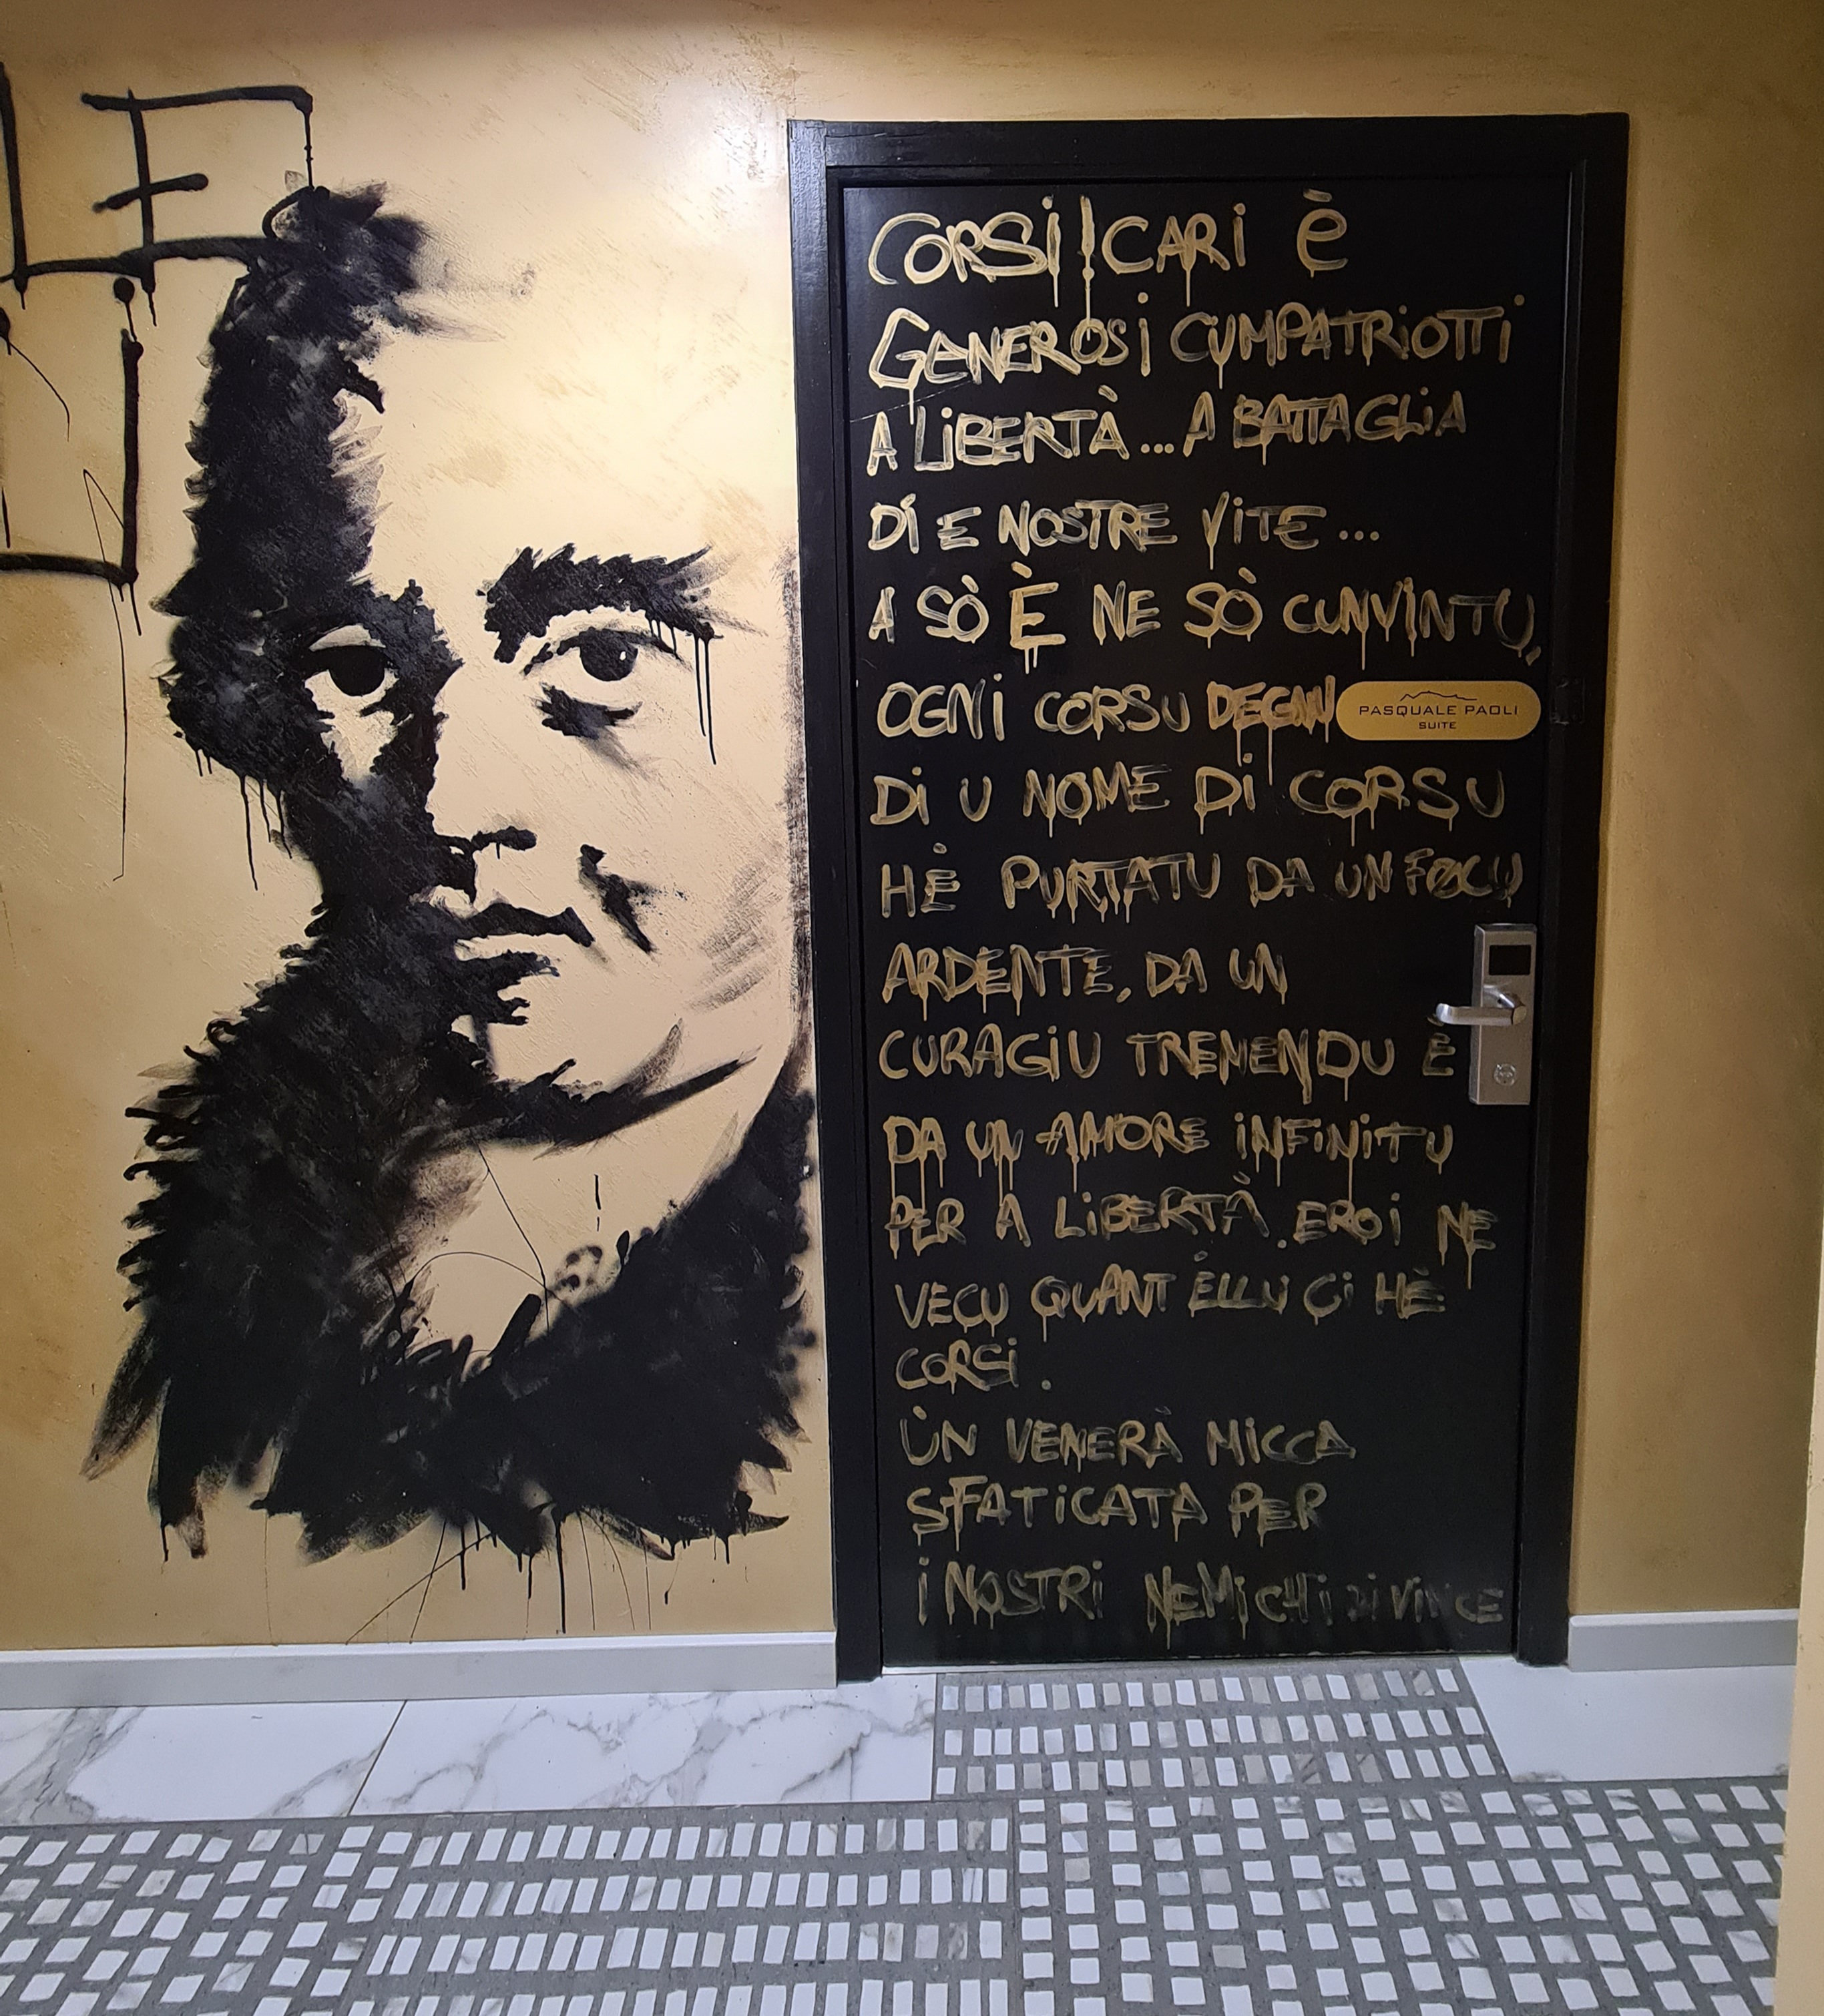 LE
CORSI! CARI È
GENEROSI CUMPATRIOTTI
A LIBERTÀ... A BATTAGLIA
DI E NOSTRE VITE...
A SÒ È NE SÒ CUNVINTU,
OGNI CORSU DEGNU
PASQUALE PAOLI
SUITE
DI U NOME DI CORSU
HÈ PURTATU DA UN FOCU
ARDENTE, DA UN
CURAGIU TREMENDU È
DA UN AMORE INFINITU
PER A LIBERTÀ. EROI NE
VECU QUANT ÈLLU CI HÈ
CORSI.
ÙN VENERÀ MICCA
SFATICATA PER
I NOSTRI NEMICHI DI VINCE